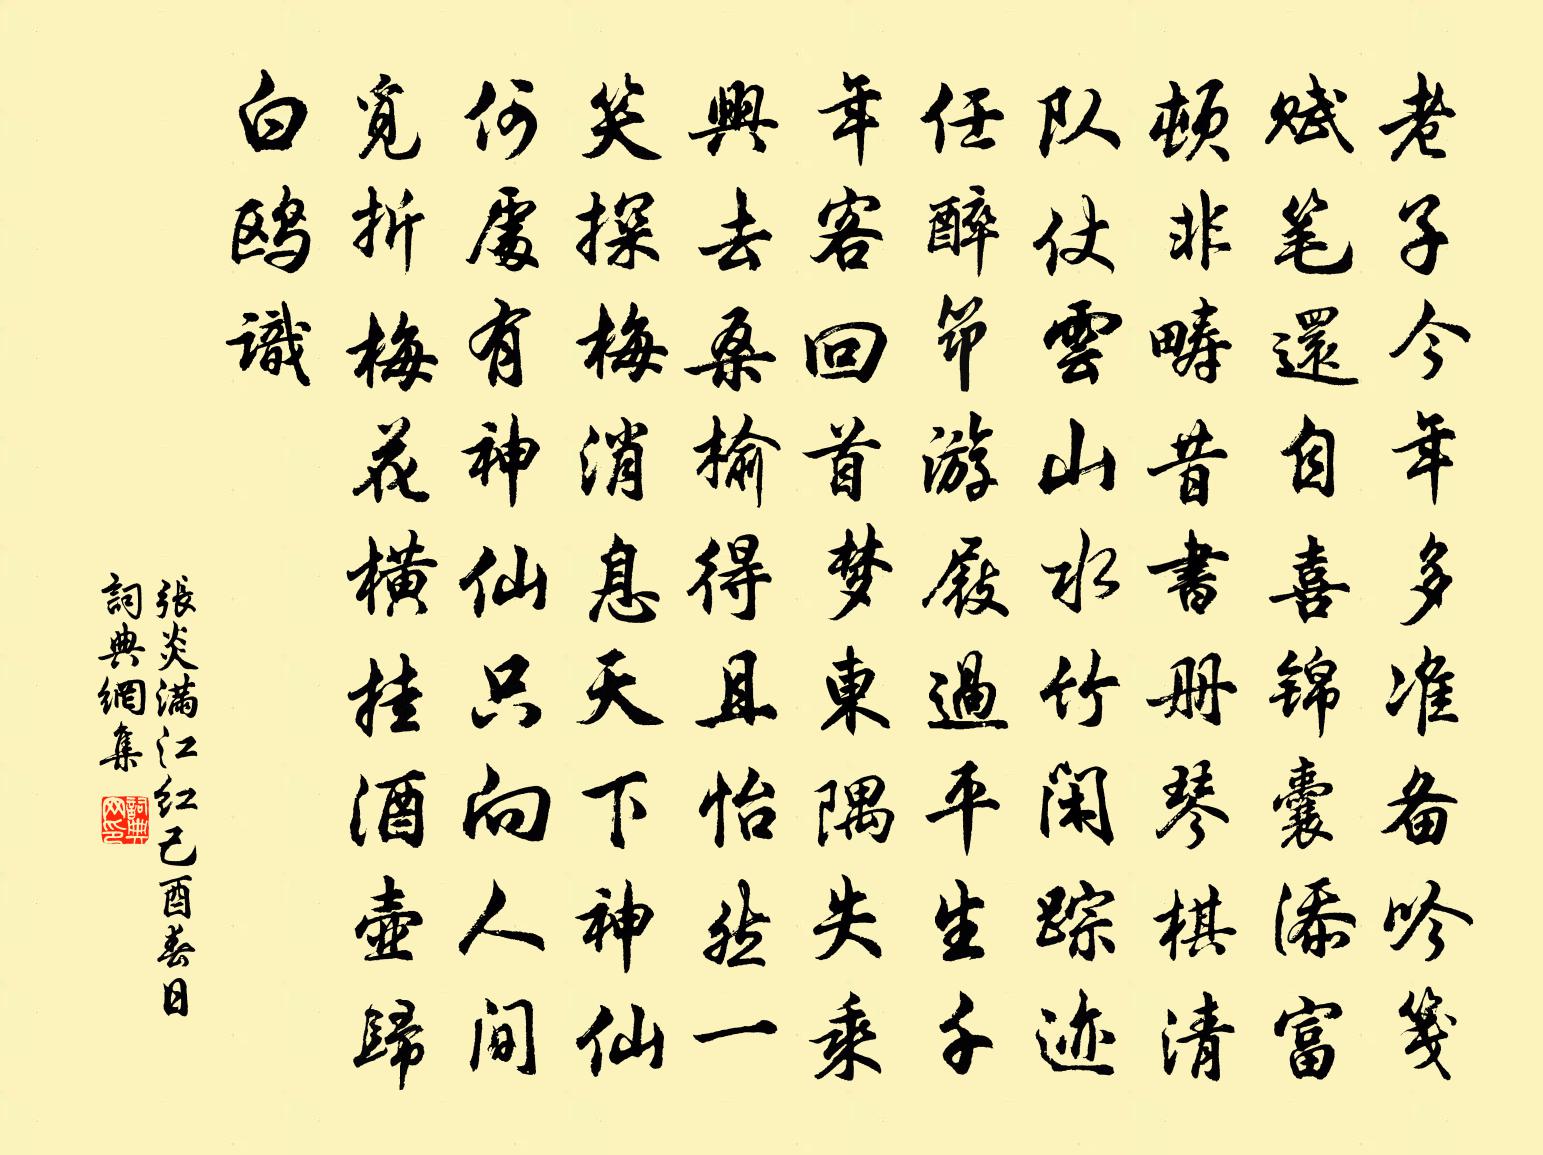 老子今年多准备吟笺
赋笔還自喜锦囊添富
顿非畴昔書册琴棋清
队仗雲山水竹闲踪迹
任醉筇游屐過平生千
年客回首梦東隅失乘
興去桑榆得且怡然一
笑探梅消息天下神仙
何處有神仙只向人间
覓折梅花横挂酒壶歸
白鸥識
張炎满江红己酉春日
詞典網集
詞典网印